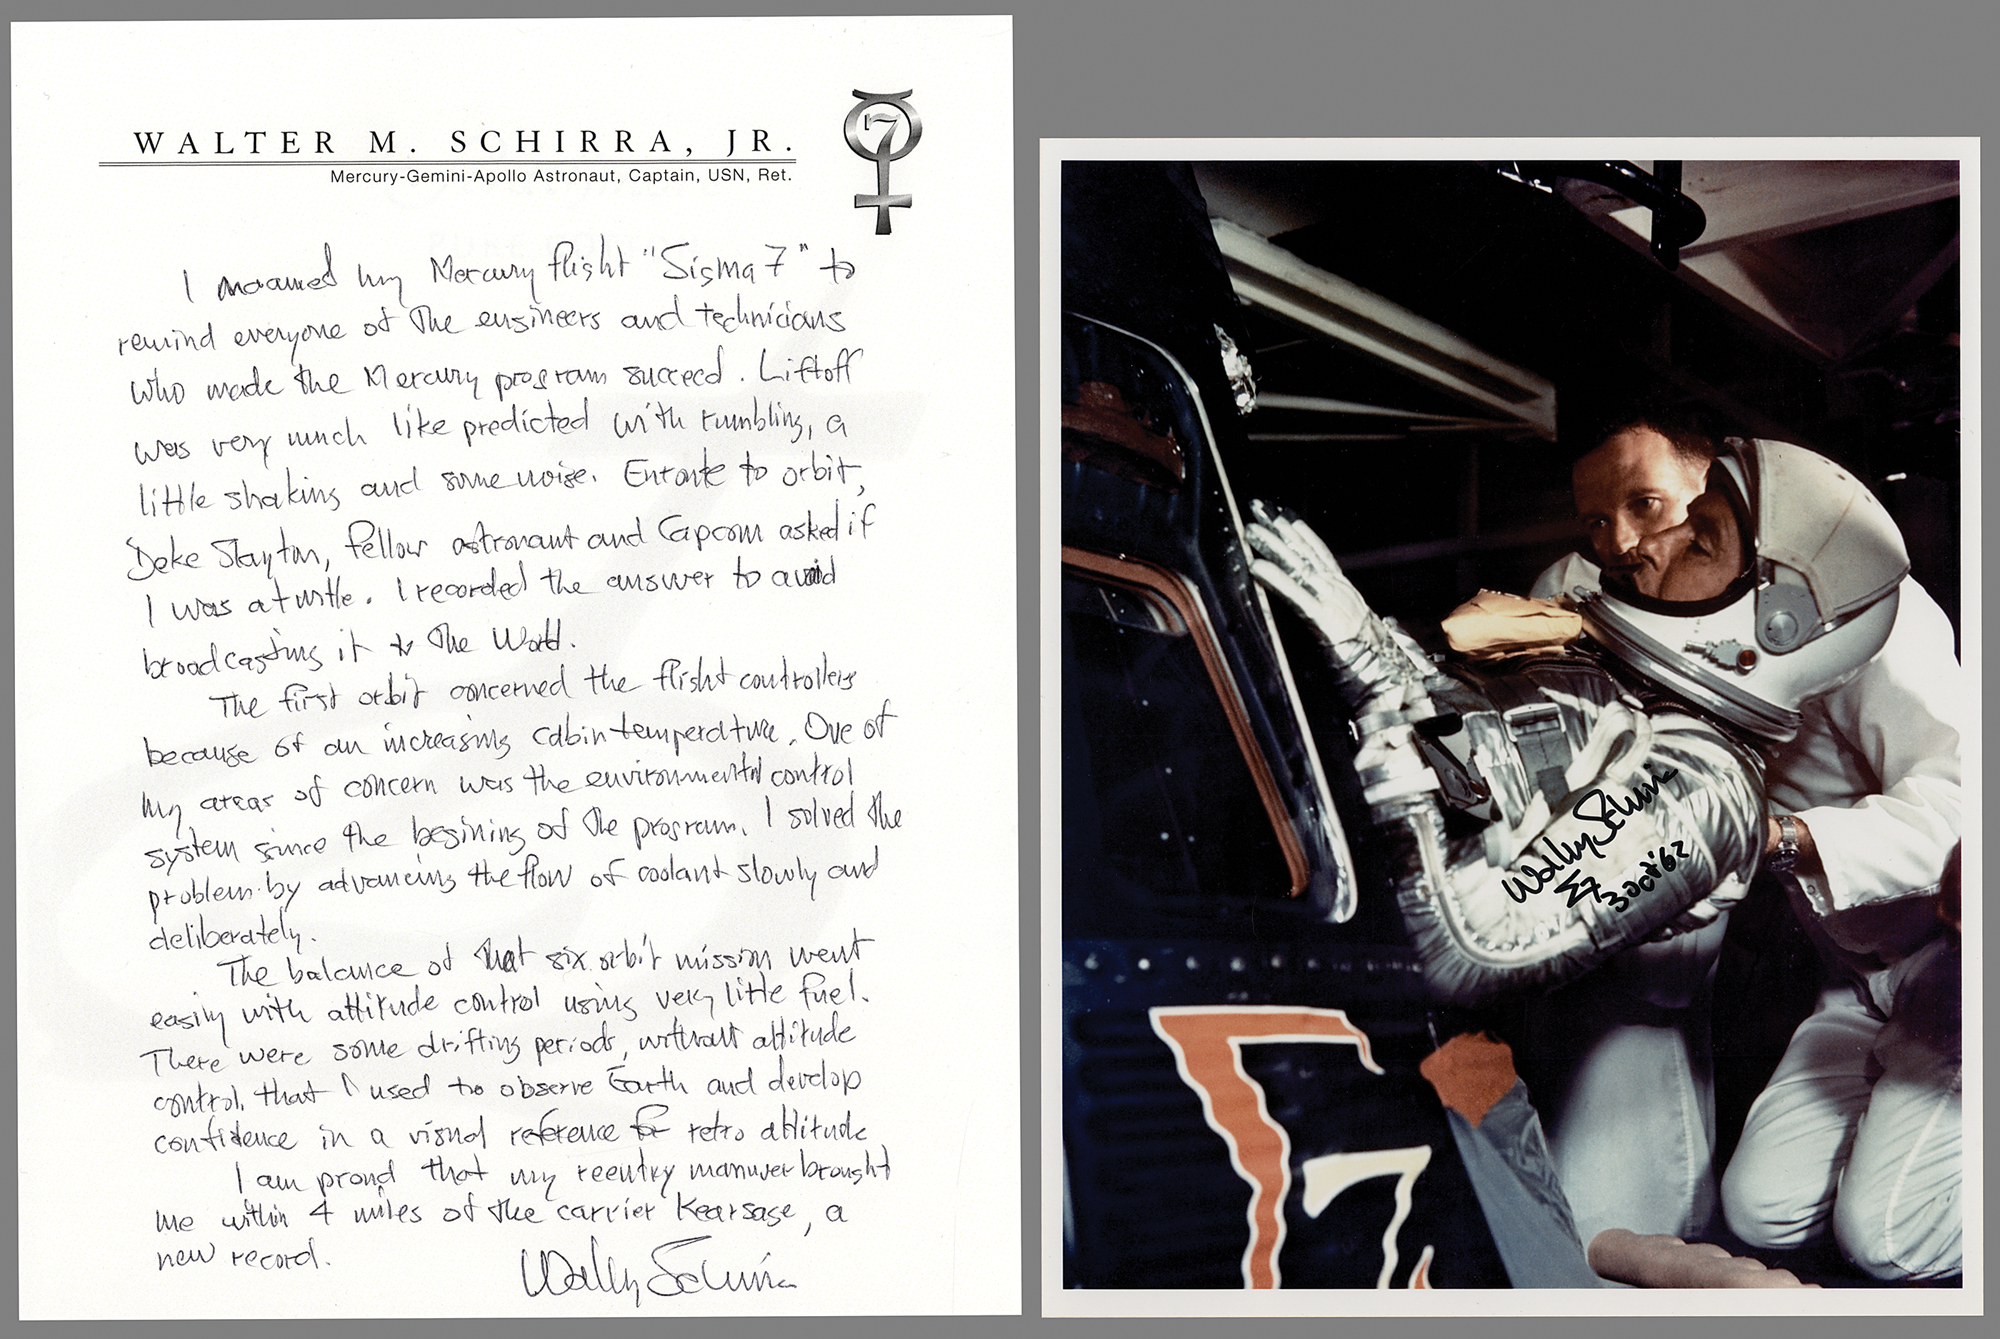 WALTER M. SCHIRRA, JR.
Mercury-Gemini-Apollo Astronaut, Captain, USN, Ret.
7
I named my Mercury flight "Sigma 7" to
remind everyone of the engineers and technicians
who made the Mercury program succeed. Liftoff
was very much like predicted with rumbling, a
little shaking and some noise. Enroute to orbit,
Deke Slayton, fellow astronaut and Capcom asked if
I was a turtle. I recorded the answer to avoid
broadcasting it to the World.
The first orbit concerned the flight controllers
because of an increasing cabin temperature. One of
my areas of concern was the environmental control
system since the begining of the program. I solved the
problem by advancing the flow of coolant slowly and
deliberately.
The balance of that six orbit mission went
easily with attitude control using very little fuel.
There were some drifting periods, without attitude
control, that I used to observe Earth and develop
confidence in a visual reference for retro attitude
I am proud that my reentry manuver brought
me within 4 miles of the carrier Kearsage, a
new record.
Wally Schirra
Wally Schirra
Σ7 3 Oct '62